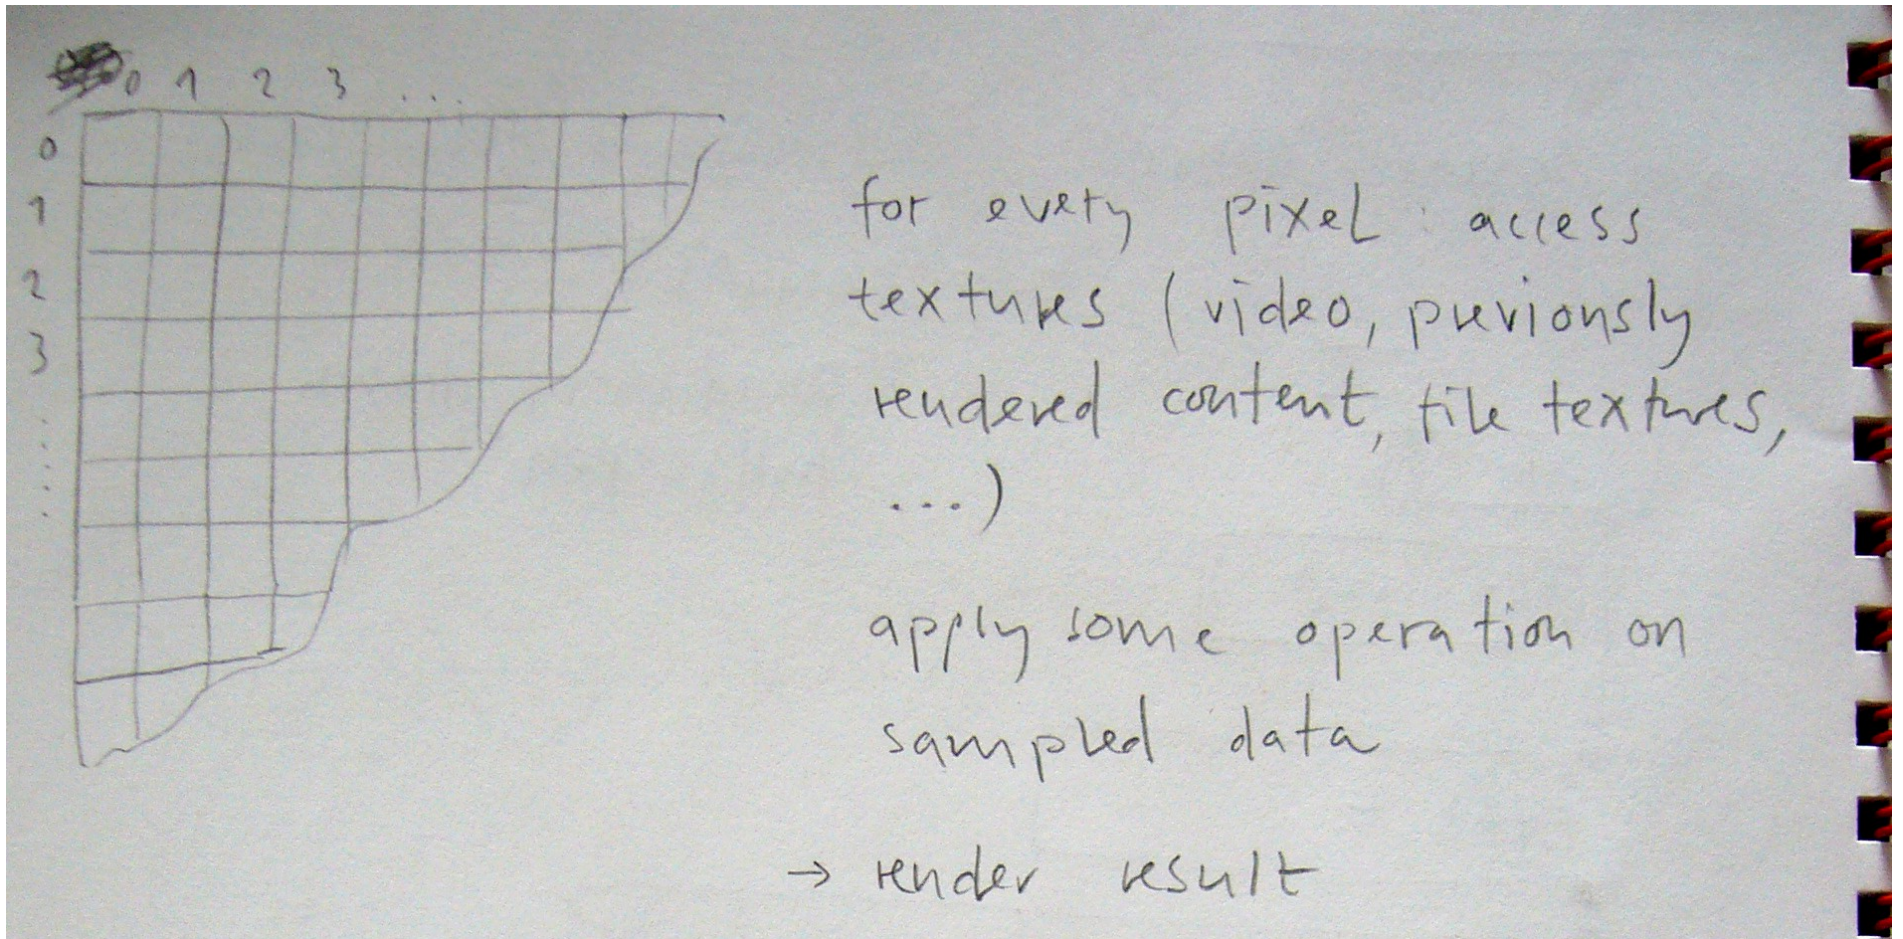 0 1 2 3 ...
0
1
2
3
for every pixel access
textures (video, previously
rendered content, tile textures,
...)
apply some operation on
sampled data
→ render result